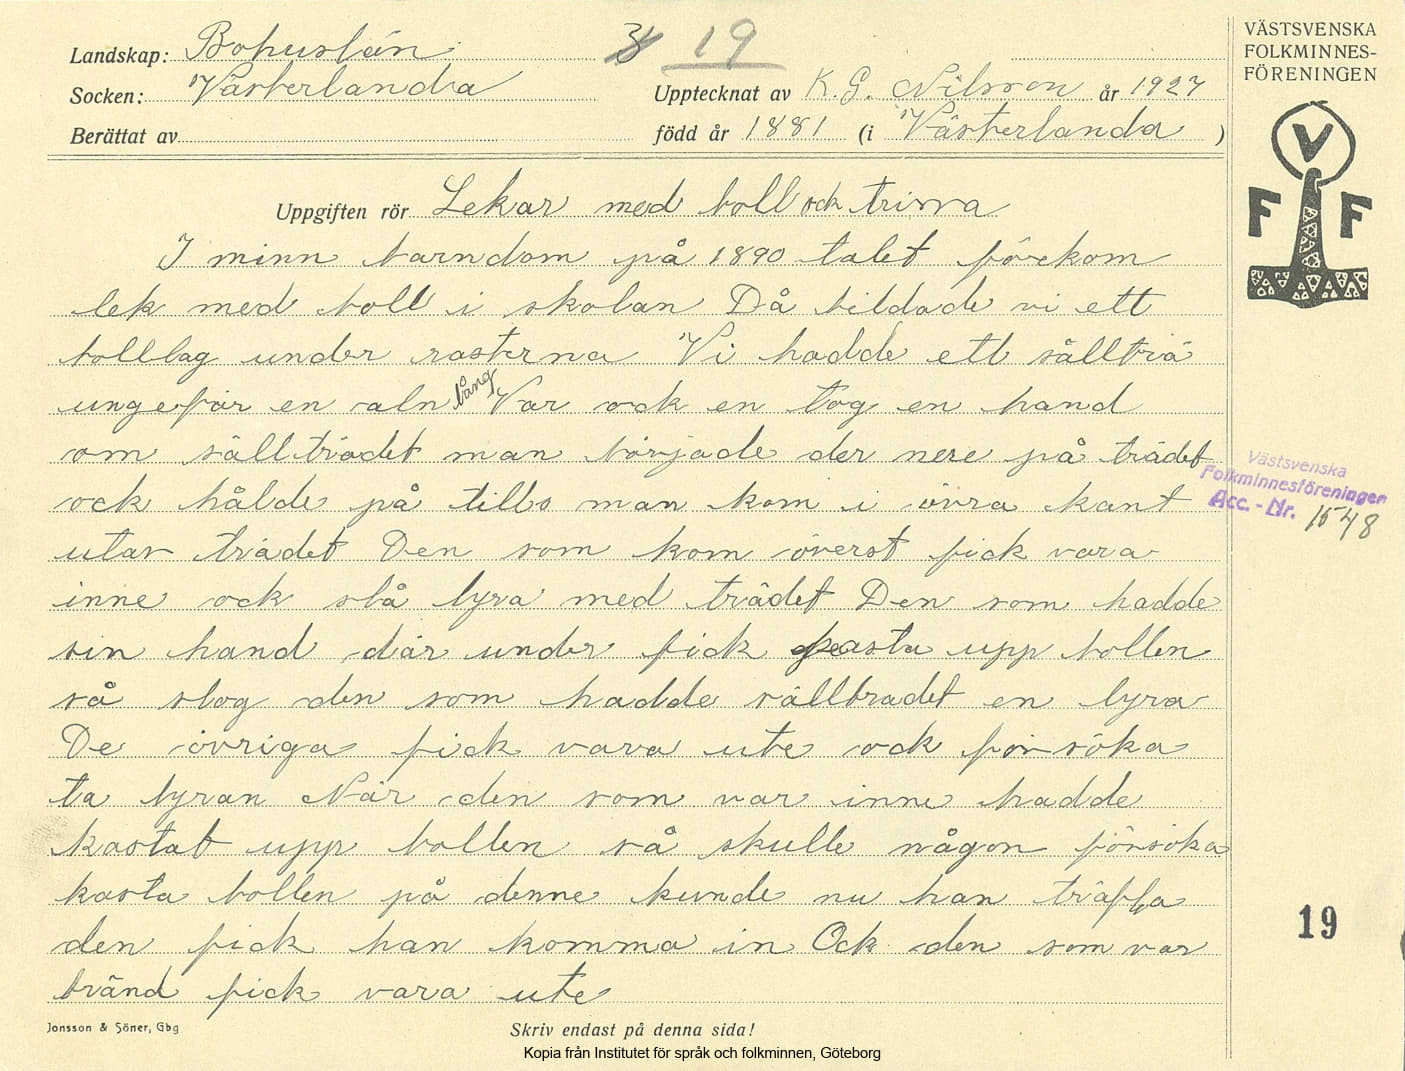 Landskap: Bohuslän 19
VÄSTSVENSKA
FOLKMINNES-
FÖRENINGEN
Socken: Västerlanda Upptecknat av K. G. Nilsson år 1927
Berättat av född år 1881 (i Västerlanda )
V
F F
Uppgiften rör Lekar med boll ock trissa
I minn barndom på 1890 talet förekom
lek med boll i skolan Då bildade vi ett
bolllag under rasterna Vi hadde ett sållträ
ungefär en aln lång Var ock en tog en hand
om sållträdet man började der nere på trädet
ock hålde på tills man kom i övra kant
utav trädet Den som kom överst fick vara
inne ock slå lyra med trädet Den som hadde
sin hand där under fick kasta upp bollen
så slog den som hadde sållträdet en lyra
De övriga fick vara ute ock försöka
ta lyran När den som var inne hadde
kastat upp bollen så skulle någon försöka
kasta bollen på denne kunde nu han träffa
den fick han komma in Ock den som var
bränd fick vara ute
Västsvenska
Folkminnesföreningen
Acc. - Nr. 1548
19
Jonsson & Söner, Gbg
Skriv endast på denna sida!
Kopia från Institutet för språk och folkminnen, Göteborg